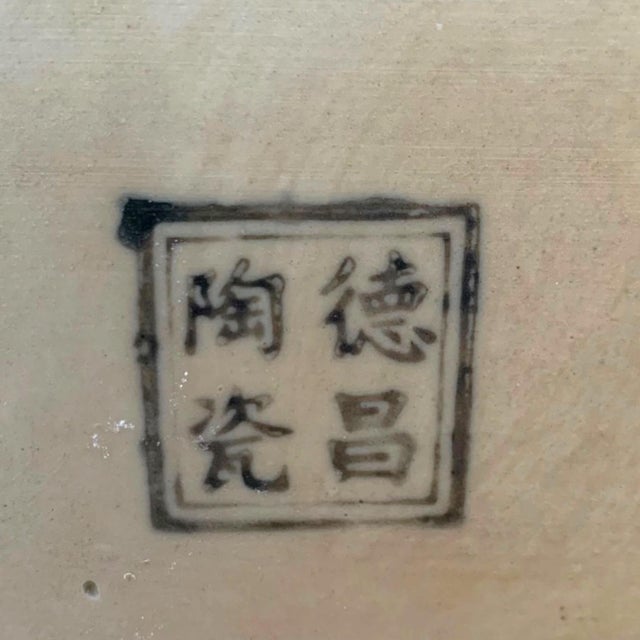 德昌
陶瓷